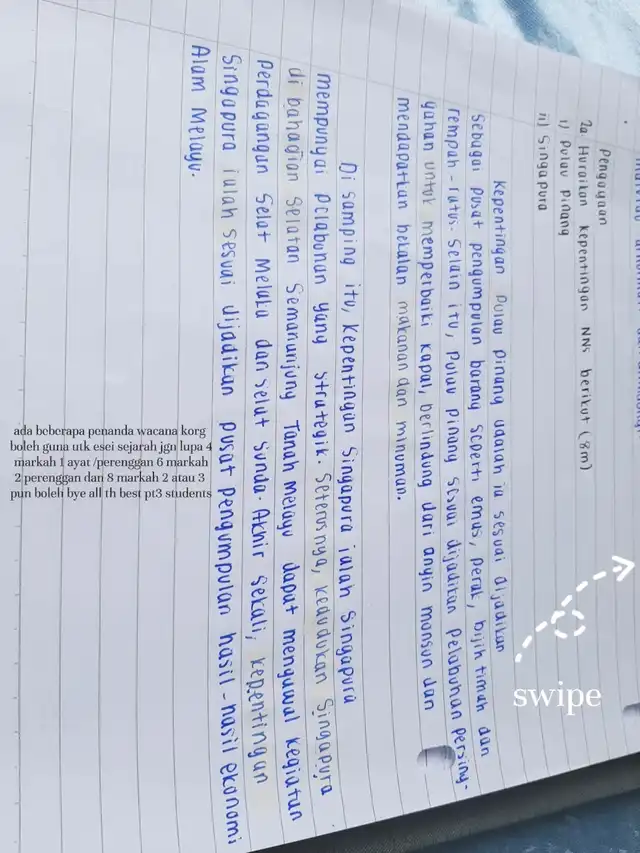 Pengayaan
2a. Huraikan kepentingan NNS berikut (8m)
i) Pulau Pinang
ii) Singapura
Kepentingan Pulau Pinang ialah ia sesuai dijadikan
sebagai pusat pengumpulan barang seperti emas, perak, bijih timah dan
rempah-ratus. Selain itu, Pulau Pinang sesuai dijadikan pelabuhan persing-
gahan untuk memperbaiki kapal, berlindung dari angin monsun dan
mendapatkan bekalan makanan dan minuman.
Di samping itu, kepentingan Singapura ialah Singapura
mempunyai pelabuhan yang strategik. Seterusnya, kedudukan Singapura
di bahagian Selatan Semananjung Tanah Melayu dapat mengawal kegiatan
perdagangan Selat Melaka dan Selat Sunda. Akhir sekali, kepentingan
Singapura ialah sesuai dijadikan pusat pengumpulan hasil-hasil ekonomi
Alam Melayu.
ada beberapa penanda wacana korg
boleh guna utk esei sejarah jgn lupa 4
markah 1 ayat /perenggan 6 markah
2 perenggan dan 8 markah 2 atau 3
pun boleh bye all th best pt3 students
swipe